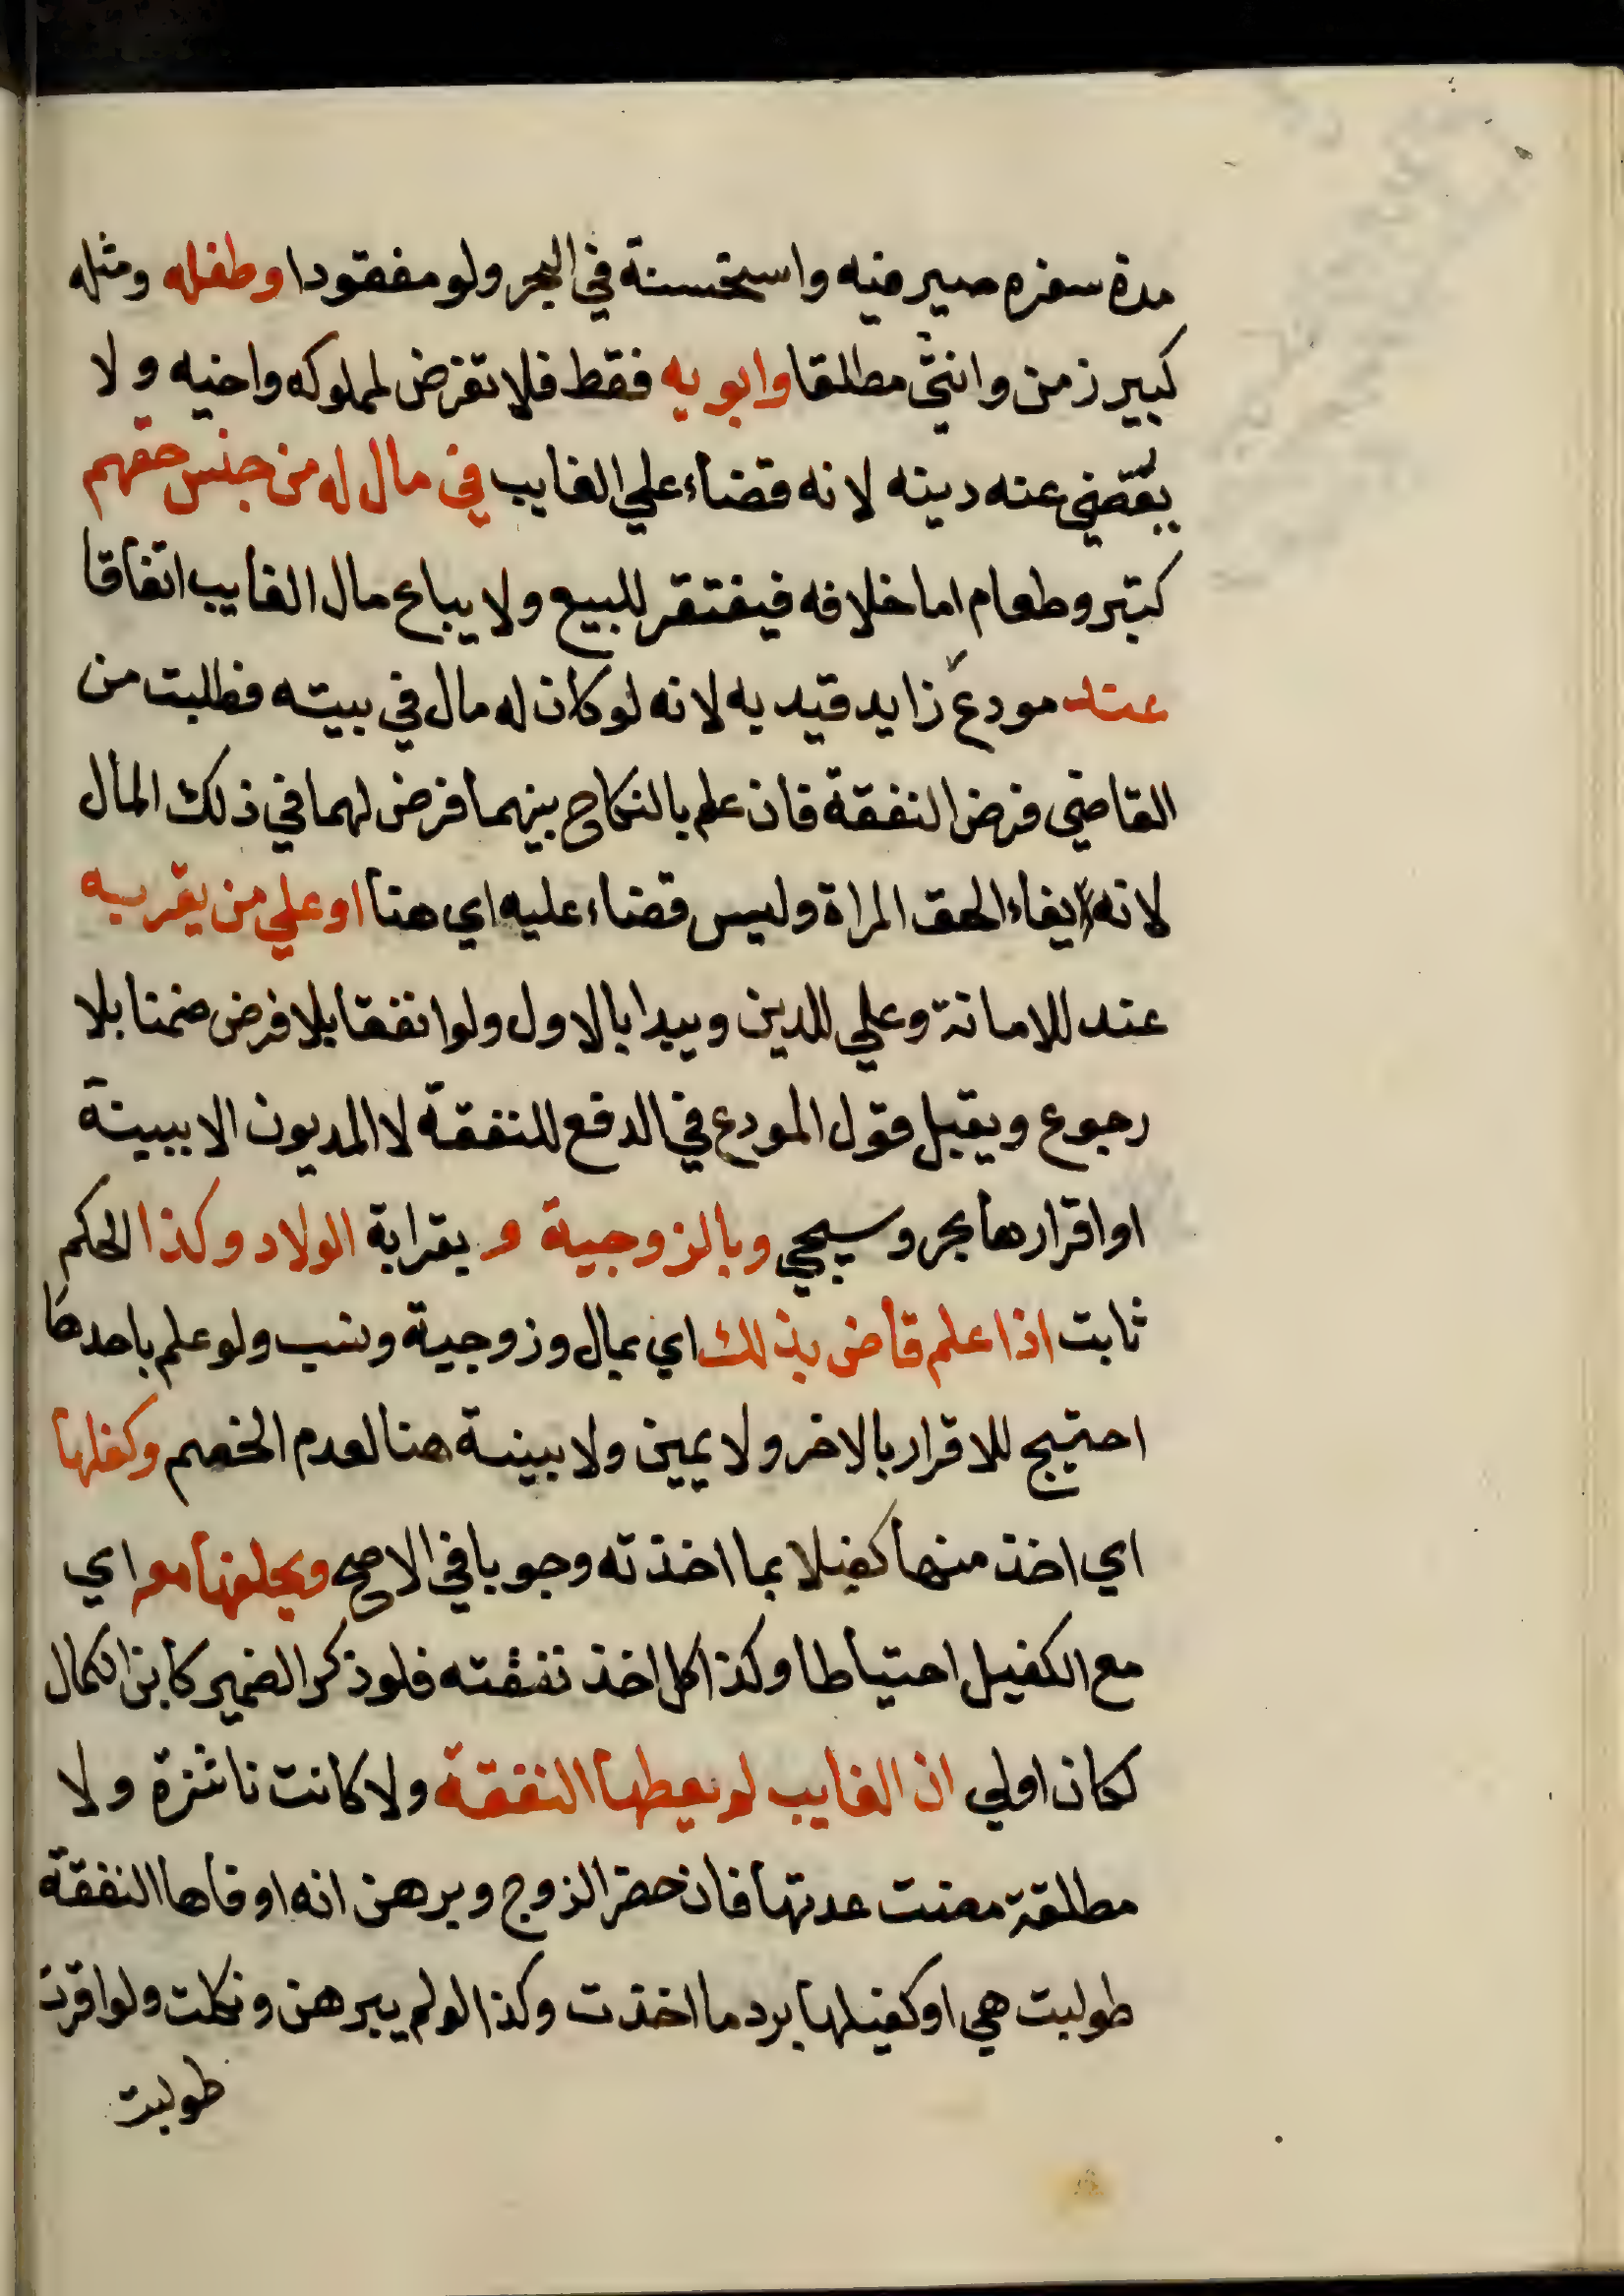 مدة سفره صيرفيه واستحسنة في البحر ولو مفقودا وطفله ومثله
كبير زمن وانثي مطلقا وابويه فقط فلا تفرض لمملوكه واخيه ولا
يقضي عنه دينه لانه قضاء علي الغايب في مال له من جنس حقهم
كتبر وطعام اما خلافه فيفتقر للبيع ولا يباع مال الغايب اتفاقا
عند مودع زايد قيد به لانه لو كان له مال في بيته فطلبت من
القاضي فرض النفقة فان علم بالنكاح بينهما فرض لهما في ذلك المال
لانه ايفاء لحق المراة وليس قضاء عليه اي هنا او علي من يقر به
عند للامانة وعلي للدين ويبدا بالاول ولو انفقا بلا فرض ضمنا بلا
رجوع ويقبل قول المودع في الدفع للنفقة لا المديون الا ببينة
او اقرارها بحر وسيجي وبالزوجية و بقرابة الولاد وكذا الحكم
ثابت اذا علم قاض بذلك اي بمال وزوجية ونسب ولو علم باحدها
احتيج للاقرار بالاخر ولا يمين ولا بينة هنا لعدم الخصم وكفلها
اي اخذ منها كفيلا بما اخذته وجوبا في الاصح ويحلفها معه اي
مع الكفيل احتياطا وكذا كل اخذ نفقته فلو ذكر الضمير كابن الكمال
لكان اولي ان الغايب لم يعطها النفقة ولا كانت ناشزة ولا
مطلقة مضت عدتها فان حضر الزوج وبرهن انه اوفاها النفقة
طولبت هي او كفيلها برد ما اخذت وكذا لو لم يبرهن ونكلت ولو اقرت
طولبت